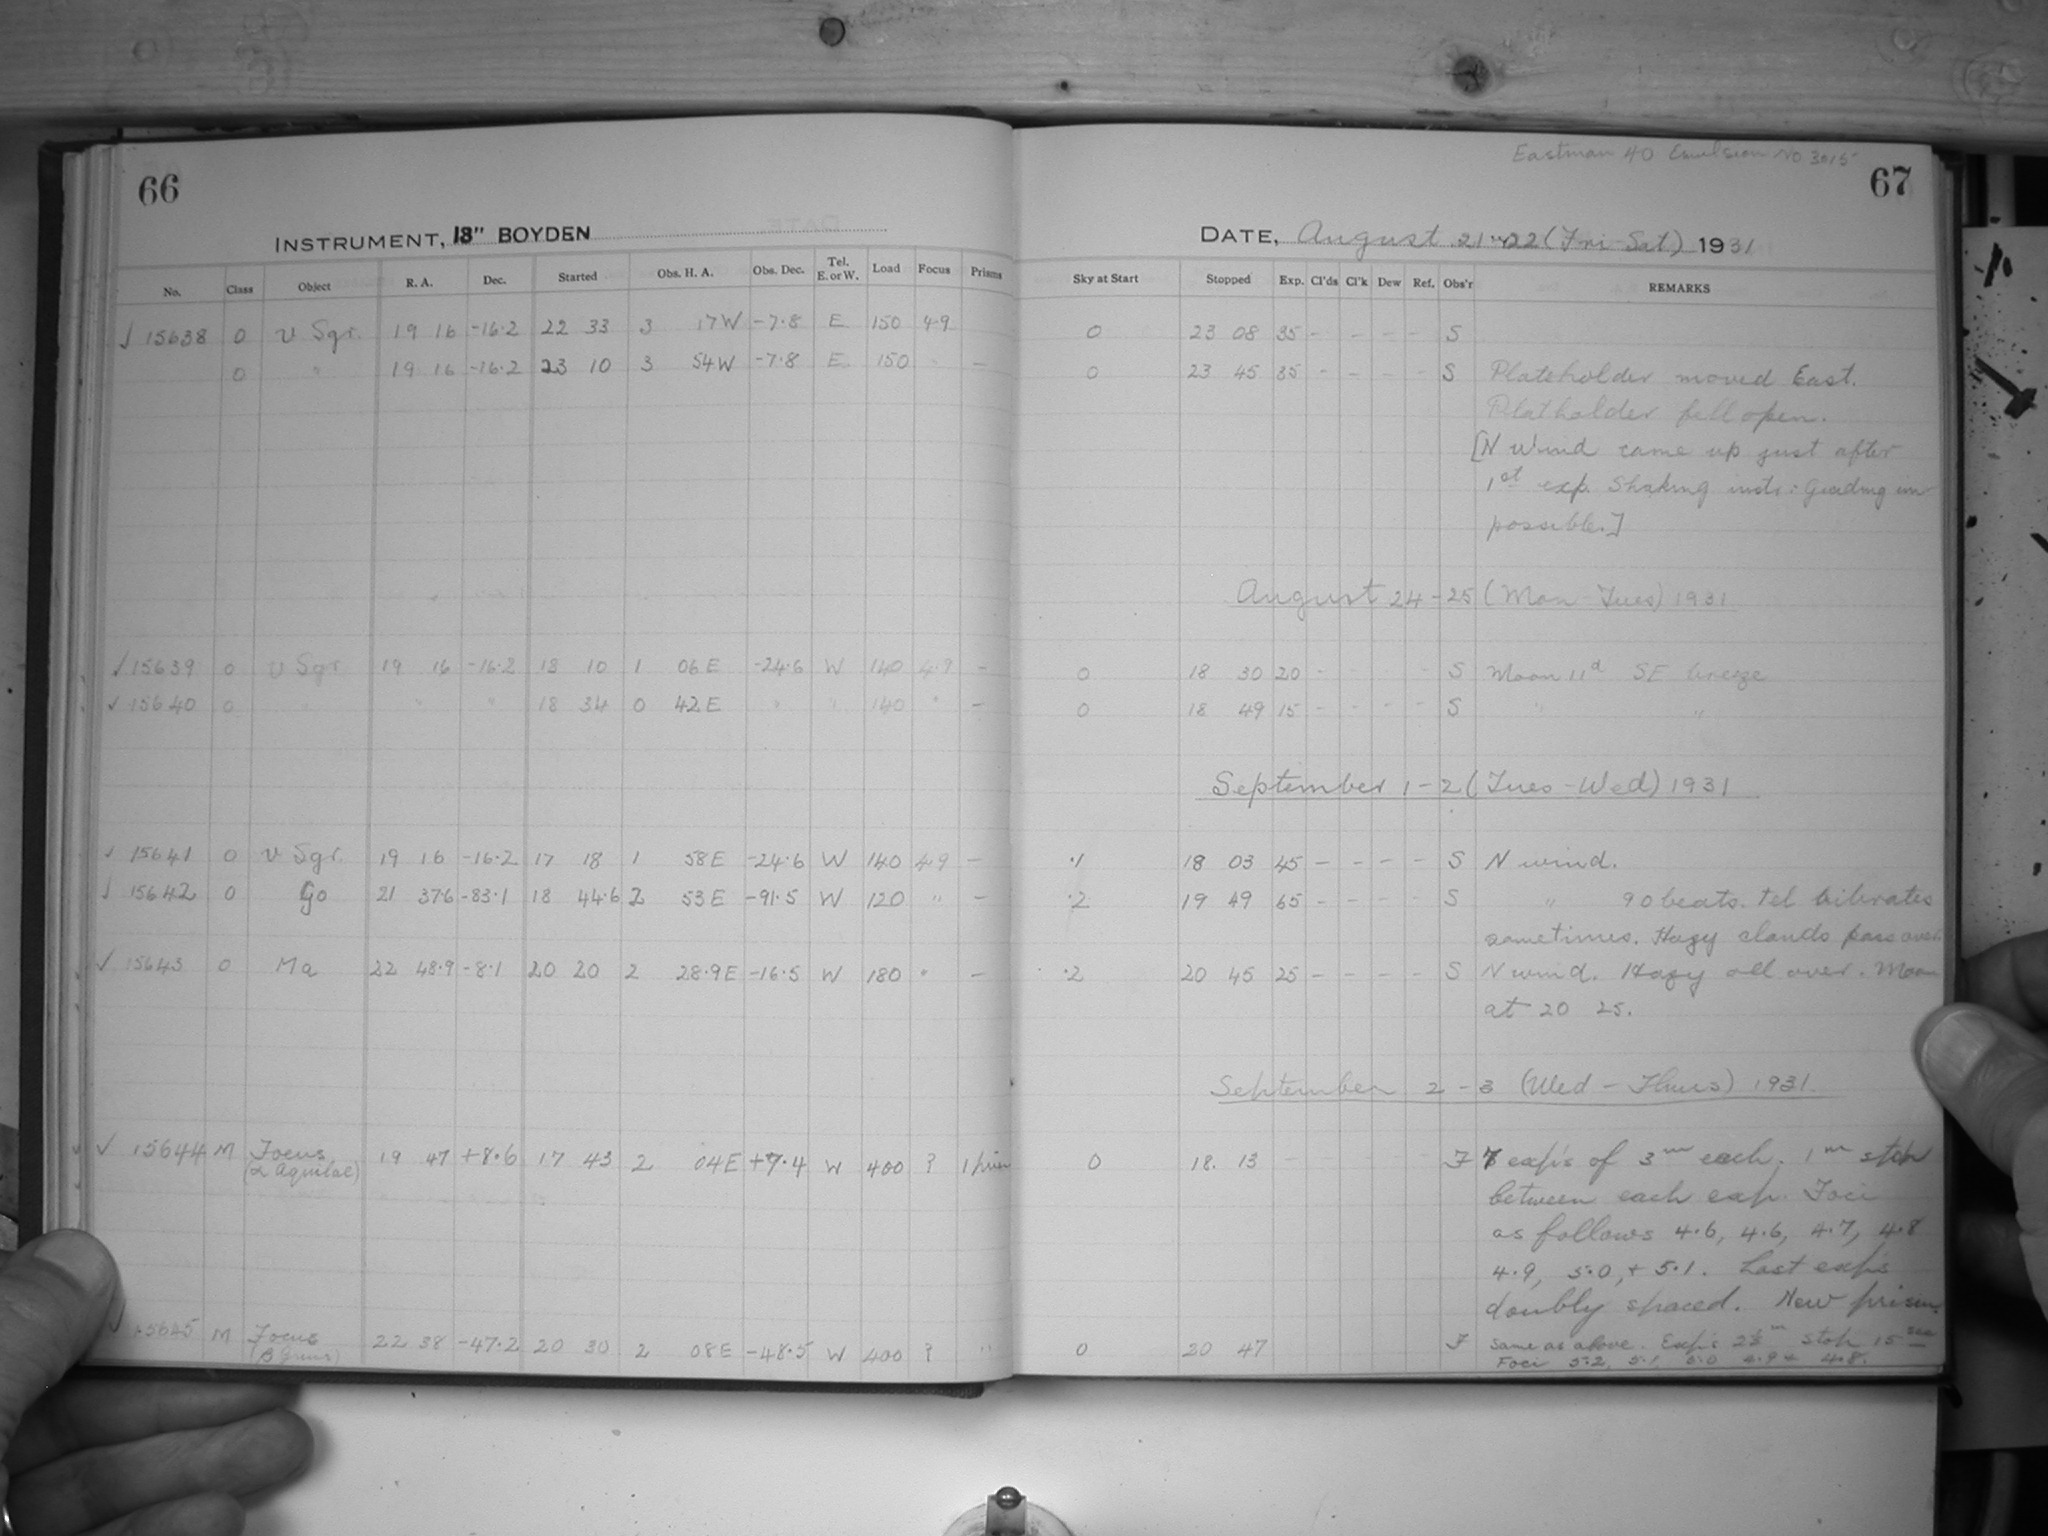 66
INSTRUMENT, 18" BOYDEN
No. Class Object R. A. Dec. Started Obs. H. A. Obs. Dec. Tel. E. or W. Load Focus Prisms
√ 15638 0 υ Sgr. 19 16 -16.2 22 33 3 17W -7.8 E 150 4.9
0 " 19 16 -16.2 23 10 3 54W -7.8 E 150 " -
√ 15639 0 υ Sgr 19 16 -16.2 18 10 1 06E -24.6 W 140 4.9 -
√ 15640 0 " " " 18 34 0 42E " " 140 " -
√ 15641 0 υ Sgr. 19 16 -16.2 17 18 1 58E -24.6 W 140 4.9 -
√ 15642 0 Go 21 37.6 -83.1 18 44.6 2 53E -91.5 W 120 " -
√ 15643 0 Ma 22 48.9 -8.1 20 20 2 28.9E -16.5 W 180 " -
√ 15644 M Focus 19 47 +8.6 17 43 2 04E +7.4 W 400 ? 1 prism
(α Aquilae)
√ 15645 M Focus 22 38 -47.2 20 30 2 08E -48.5 W 400 ? "
(β Gruis)
Eastman 40 Emulsion No 3015
67
DATE, August 21-22 (Fri-Sat) 1931
Sky at Start Stopped Exp. Cl'ds Cl'k Dew Ref. Obs'r REMARKS
0 23 08 35 - - - - S
0 23 45 35 - - - - S Plateholder moved East.
Platholder fell open.
[N wind came up just after
1st exp. Shaking instr: Guiding im
possible.]
August 24-25 (Mon-Tues) 1931
0 18 30 20 - - - - S Moon 11d SE breeze
0 18 49 15 - - - - S " "
September 1-2 (Tues-Wed) 1931
.1 18 03 45 - - - - S N wind.
.2 19 49 65 - - - - S " 90 beats. Tel vibrates
sometimes. Hazy clouds pass over.
.2 20 45 25 - - - - S N wind. Hazy all over. Moon
at 20 25.
September 2-3 (Wed-Thurs) 1931.
0 18. 13 - - - - - F 7 exp's of 3m each. 1m stop
between each exp. Foci
as follows 4.6, 4.6, 4.7, 4.8
4.9, 5.0, + 5.1. Last exp's
doubly spaced. New prism.
0 20 47 F Same as above. Exp's 2½m stop 15 sec
Foci 5.2, 5.1, 5.0 4.9 + 4.8.